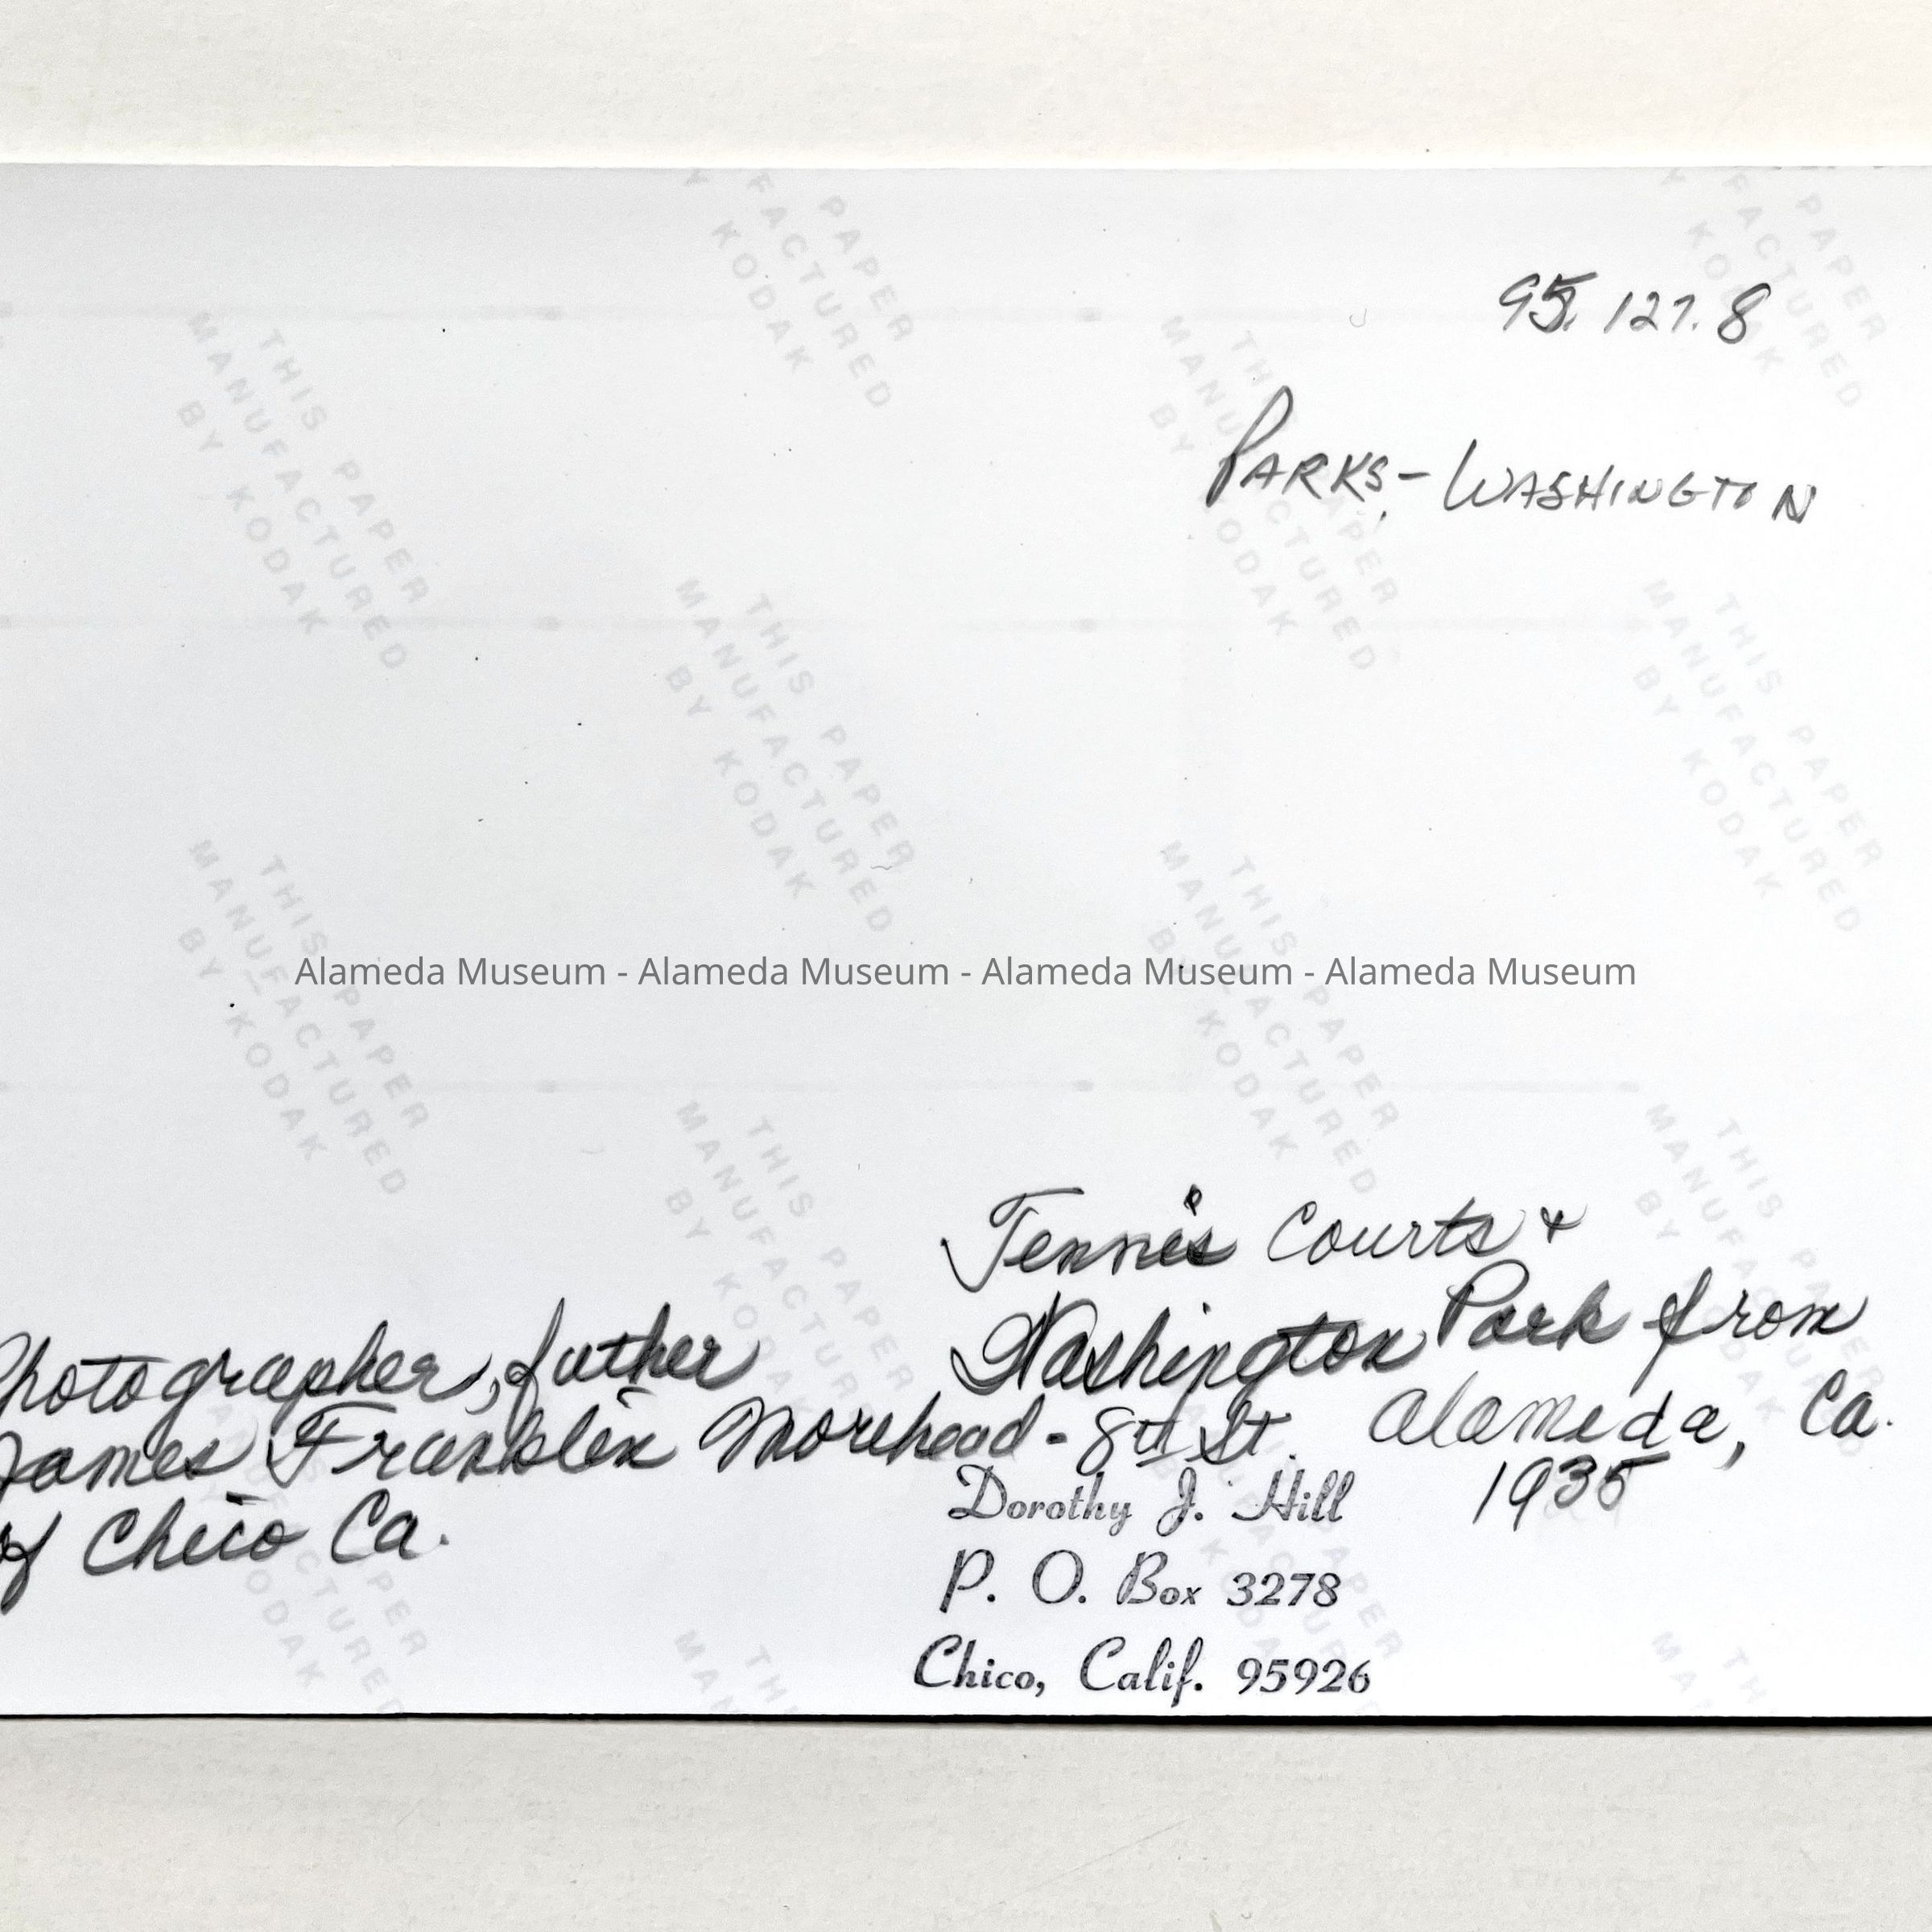 95.127.8
PARKS - WASHINGTON
Alameda Museum - Alameda Museum - Alameda Museum - Alameda Museum
Tennis Courts +
Washington Park from
8th St. Alameda, Ca.
1935
Photographer, father
James Franklin Morehead -
of Chico Ca.
Dorothy J. Hill
P. O. Box 3278
Chico, Calif. 95926
THIS PAPER
MANUFACTURED
BY KODAK